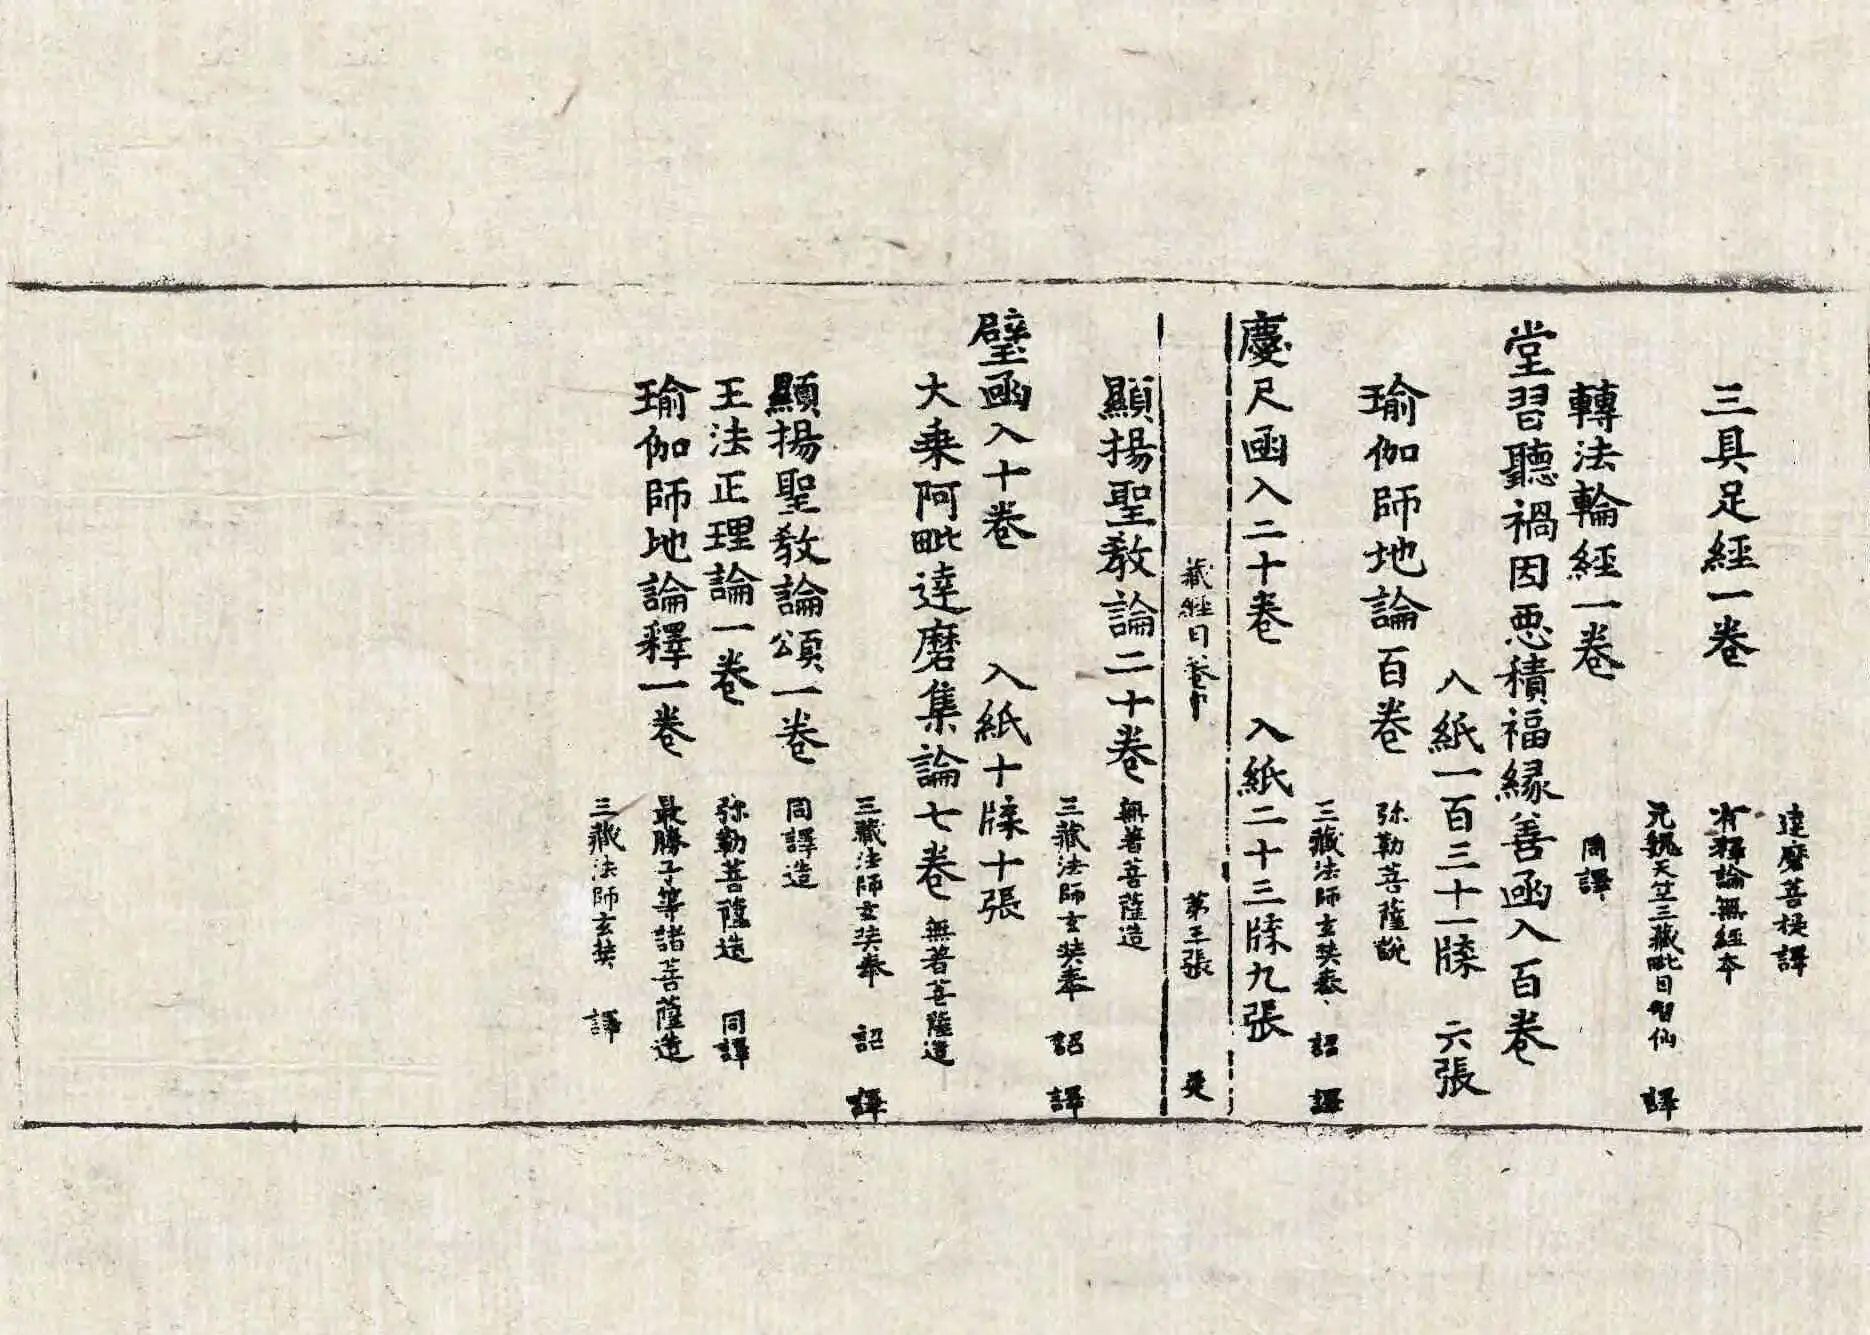 達磨菩提譯
三具足經一卷
有釋論無經本
元魏天竺三藏毗目智仙 譯
轉法輪經一卷
同譯
堂習聽禍因惡積福緣善函入百卷
入紙一百三十一牒 六張
瑜伽師地論百卷 弥勒菩薩說
三藏法師玄奘奉 詔 譯
慶尺函入二十卷 入紙二十三牒九張
藏經目卷中 第三張 更
顯揚聖教論二十卷 無著菩薩造
三藏法師玄奘奉 詔 譯
璧函入十卷 入紙十牒十張
大乘阿毗達磨集論七卷 無著菩薩造
三藏法師玄奘奉 詔 譯
顯揚聖教論頌一卷 同譯造
王法正理論一卷 弥勒菩薩造 同譯
瑜伽師地論釋一卷 最勝子等諸菩薩造
三藏法師玄奘 譯